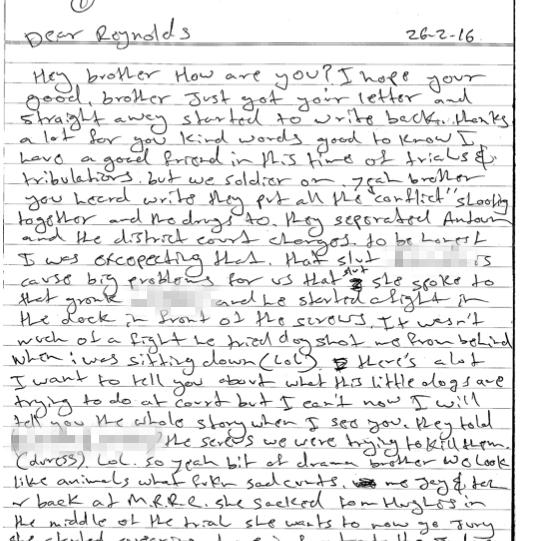 ①
Dear Reynolds 26-2-16
Hey brother How are you? I hope your
good, brother Just got your letter and
straight away started to write back. thanks
a lot for you kind words good to know I
have a good friend in this time of trials &
tribulations. but we soldier on. yeah brother
you heard write they put all the "conflict" shooting
together and the drugs to. they seperated Antoun
and the district court charges. to be honest
I was excopecting that. that slut is
cause big problems for us that slut she spoke to
that gronk and he started a fight in
the dock in front of the screws. It wasn't
much of a fight he tried dog shot me from behind
when i was sitting down (LOL). there's a lot
I want to tell you about what this little dogs are
trying to do at court but I can't now I will
tell you the whole story when I see you. they told
the screws we were trying to kill them.
(duress). Lol. so yeah bit of drama brother we look
like animals what fukn sadcunts. me Jey &
back at M.R.R.C. she sacked tom Hughes in
the middle of the trial she wants to now go Jury
she started